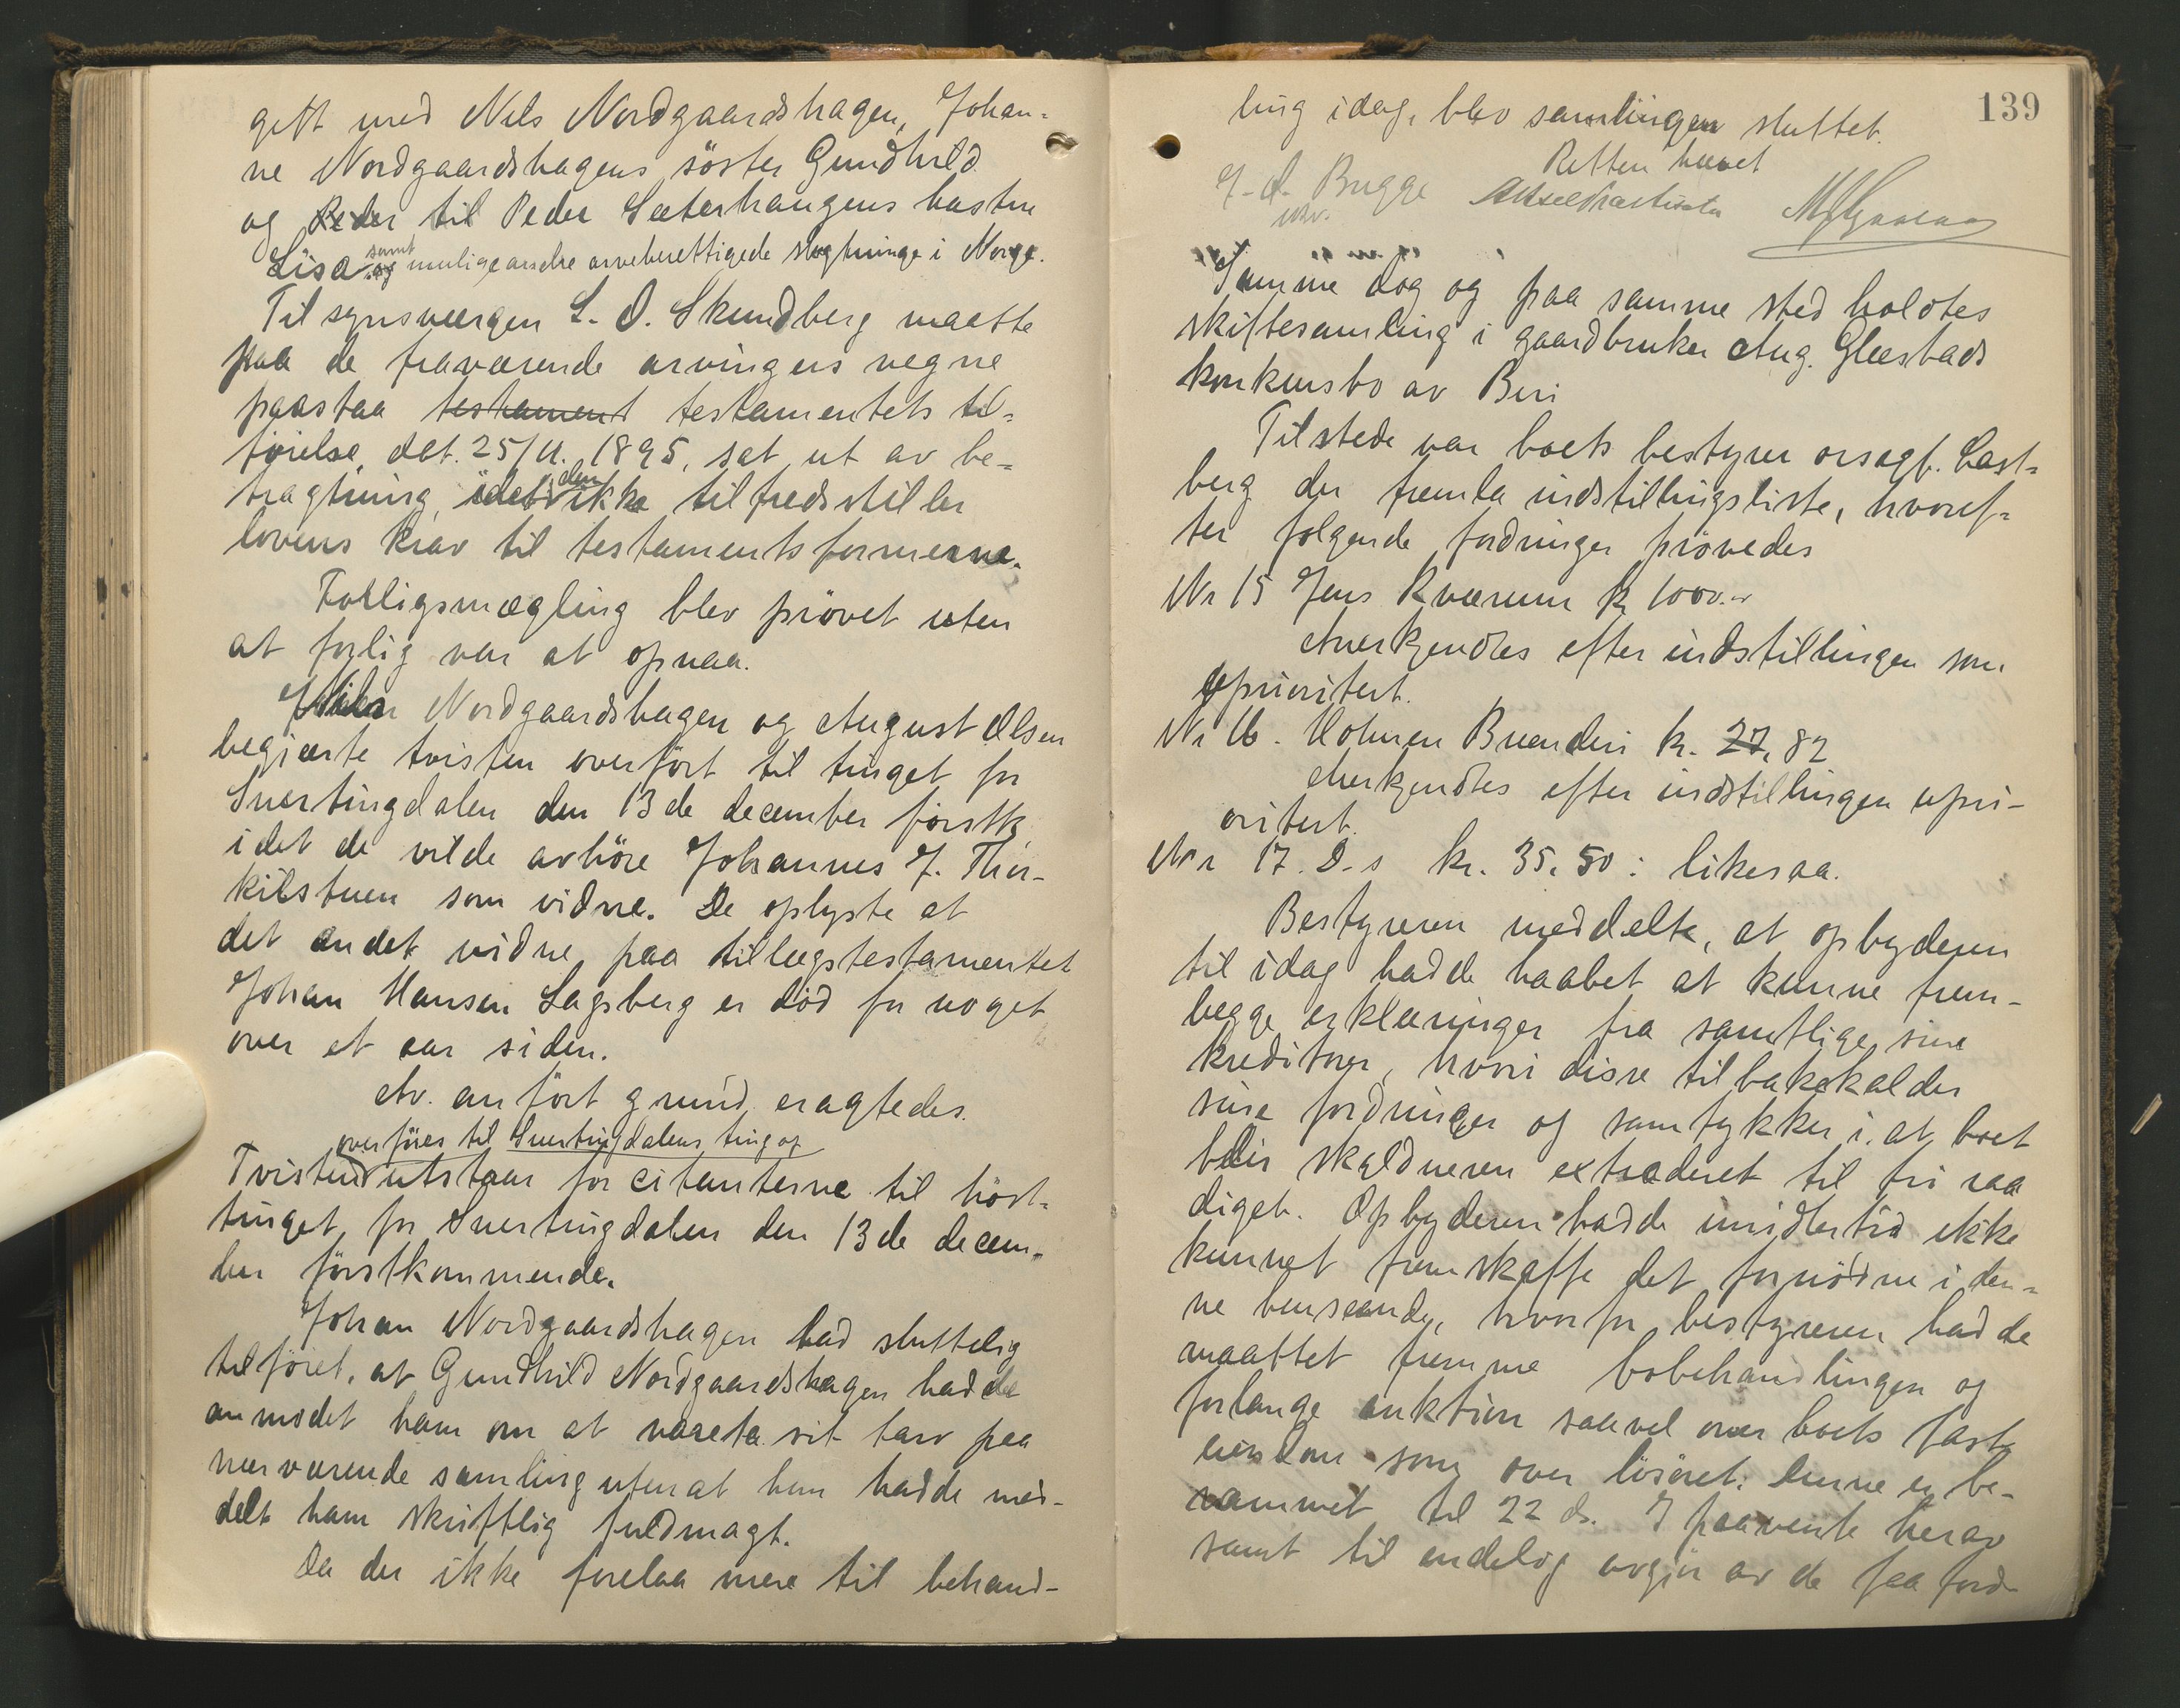 gift med Nils Nordgaardshagen, Johan-
ne Nordgaardshagens søster Gundhild
og Peder til Peder Sæterhaugens hustru
Lisa og samt mulige andre arveberettigede slegtninge i Norge.
Tilsynsværgen L. O. Skundberg maatte
paa de fraværende arvingers vegne
paastaa testament testamentets til-
föielse dat. 25/11. 1895, sat ut av be-
tragtning, idet den ikke tilfredsstiller
lovens krav til testamentsformerne.
Forligsmægling blev prövet uten
at forlig var at opnaa.
Johan Nordgaardshagen og August Olsen
begjærte tvisten overfört til tinget for
Snertingdalen den 13de december förstk.
idet de vilde avhöre Johannes J. Thor-
kilstuen som vidne. De oplyste at
det andet vidne paa tillægstestamentet
Johan Hansen Lagsberg er död for noget
over et aar siden.
Av. anfört grund eragtedes.
overföres til Snertingdalens ting og
Tvisten utstaar for citanterne til höst-
tinget for Snertingdalen den 13de decem-
ber förstkommende.
Johan Nordgaardshagen bad sluttelig
tilföiet, at Gundhild Nordgaardshagen hadde
anmodet ham om at vareta sit tarv paa
nærværende samling uten at hun hadde med-
delt ham skriftlig fuldmagt.
Da der ikke forelaa mere til behand-
139
ling idag, blev samlingen sluttet.
Retten hævet
J. A. Bugge
Samme dag og paa samme sted holdtes
skiftesamling i gaardbruker Aug. Glæstads
konkursbo av Biri
Tilstede var boets bestyrer orsagf. Cast-
berg der fremla indstillingsliste, hvoref-
ter følgende fordringer prövedes
Nr 15 Jens Kværum kr 1000.-
Anerkjendtes efter indstillingen som
uprioritert.
Nr 16. Holmen Brænderi kr. 27,82
Anerkjendtes efter indstillingen upri-
oritert.
Nr 17. D.s kr. 35,50: likesaa.
Bestyreren meddelte, at opbyderen
til idag hadde haabet at kunne frem-
lægge erklæringer fra samtlige sine
kreditorer, hvori disse tilbakekalder
sine fordringer og samtykker i, at boet
blir skyldneren extraderet til fri raa
dighet. Opbyderen hadde imidlertid ikke
kunnet fremskaffe det fornödne i den-
ne henseende, hvorfor bestyreren hadde
maattet fremme bobehandlingen og
forlange auktion saavel over boets faste
eiendom som over lösöret. Denne er be-
rammet til 22 ds. I paavente herav
samt til endelig avgjör av de faa ford-